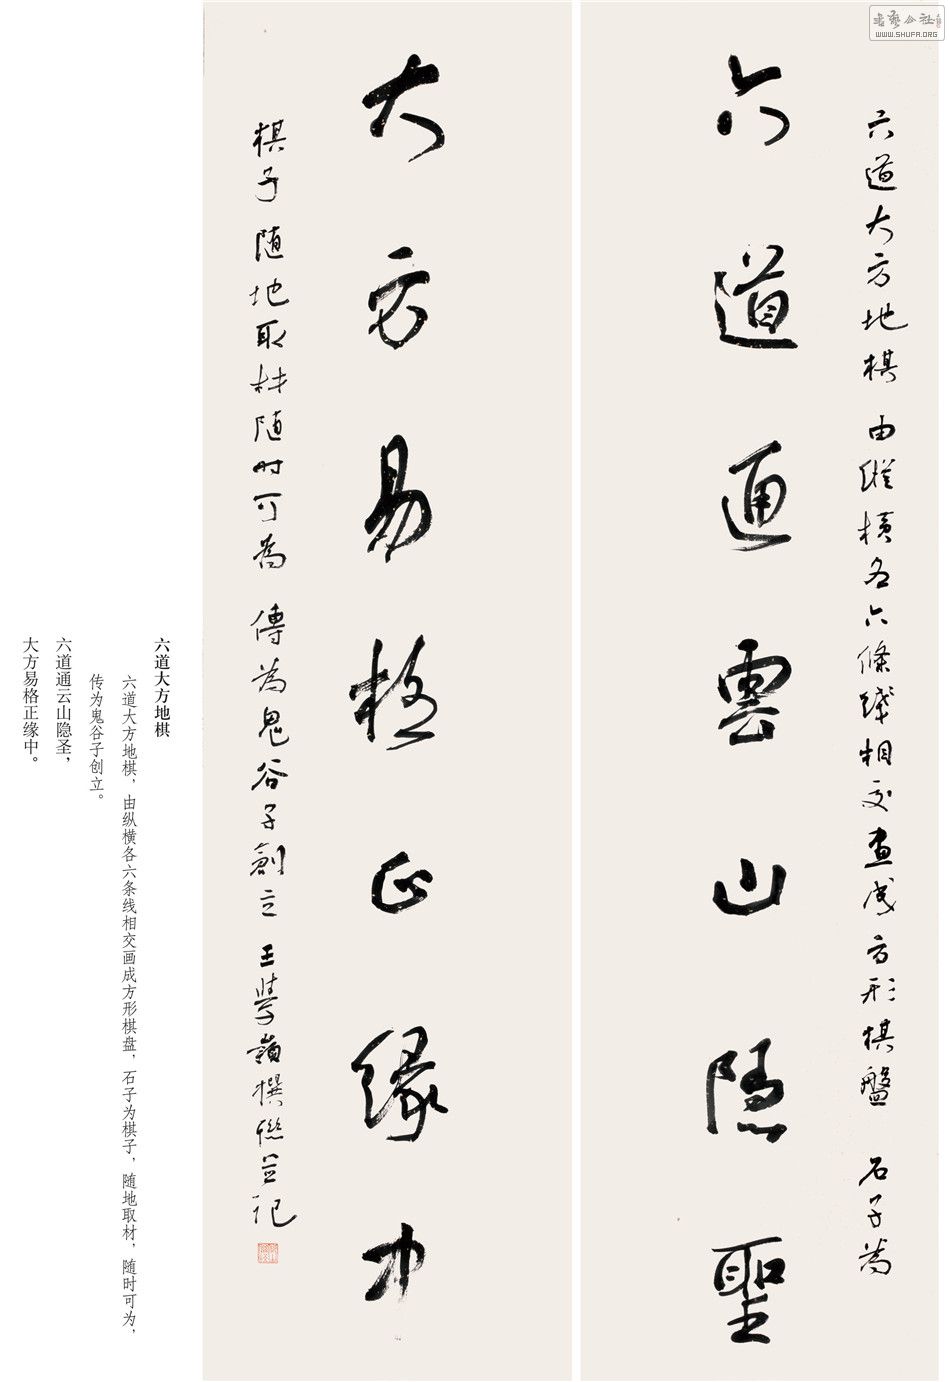 六道大方地棋 由縱橫各六條綫相交畫成方形棋盤 石子為
六道通雲山隱聖
大方易格正緣中
棋子 随地取材随时可為 傳為鬼谷子創立 王學嶺撰聯並記
六道大方地棋
六道大方地棋，由纵横各六条线相交画成方形棋盘，石子为棋子，随地取材，随时可为，
传为鬼谷子创立。
六道通云山隐圣，
大方易格正缘中。
WWW.SHUFA.ORG